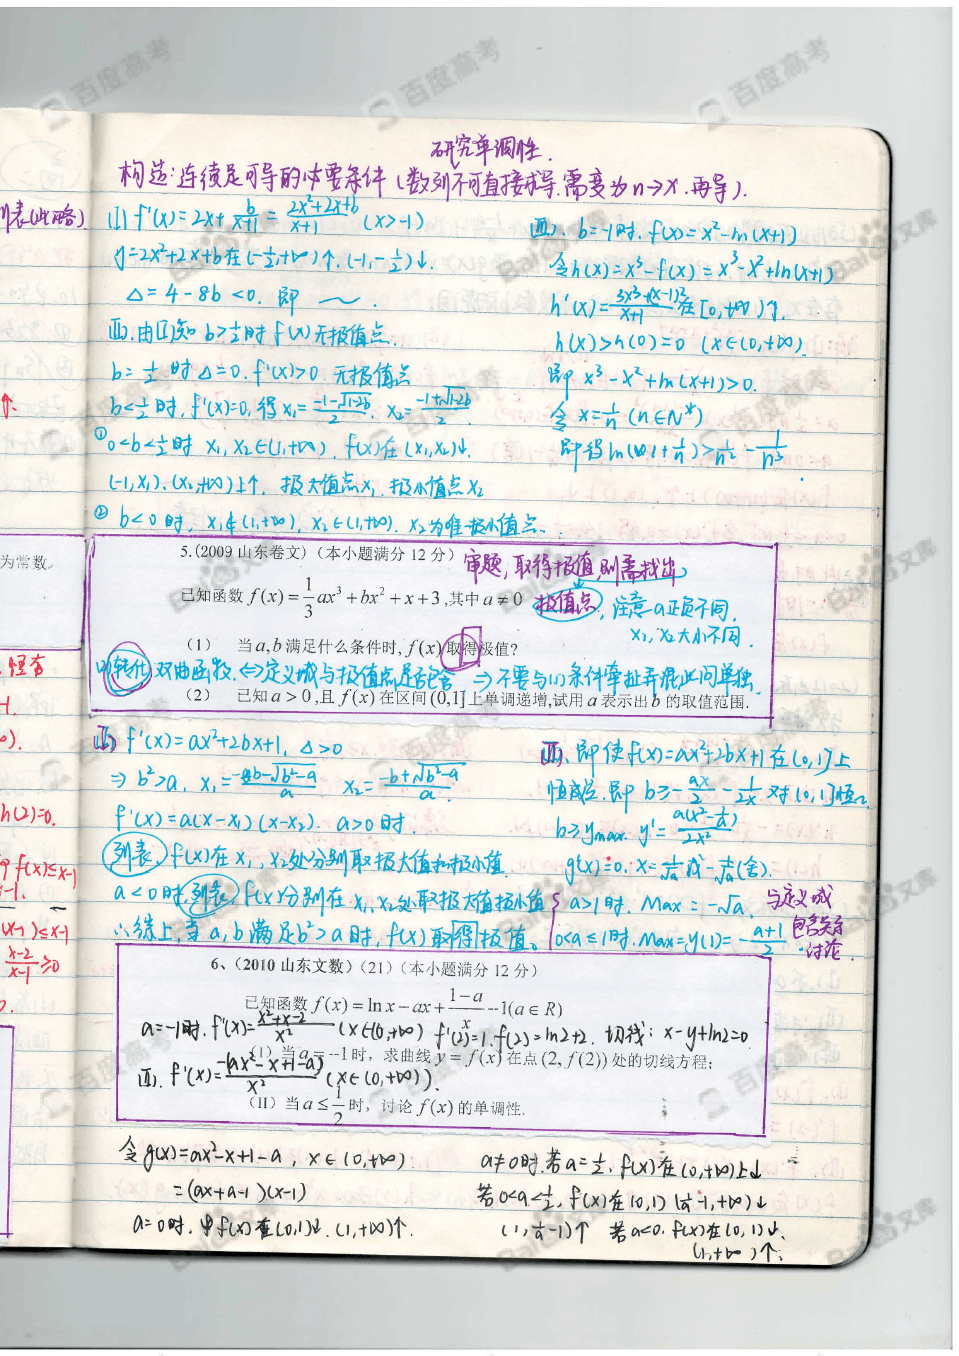 研究单调性.
构造:连续是可导的必要条件(数列不可直接求导,需变为n→x.再导).
列表(此略)
(I) f'(x)=2x+b/(x+1)=(2x²+2x+b)/(x+1) (x>-1)
y=2x²+2x+b在(-1/2,+∞)↑.(-1,-1/2)↓.
Δ=4-8b<0. 即
(II).由(I)知 b>1/2时f(x)无极值点.
b=1/2时Δ=0.f'(x)>0.无极值点
b<1/2时.f'(x)=0,得x₁=(-1-√(1-2b))/2, x₂=(-1+√(1-2b))/2
①0<b<1/2时 x₁,x₂∈(-1,+∞). f(x)在(x₁,x₂)↓.
(-1,x₁).(x₂,+∞)上↑. 极大值点x₁.极小值点x₂
②b<0时, x₁∉(-1,+∞), x₂∈(-1,+∞). x₂为唯一极小值点.
(III). b=-1时.f(x)=x²-ln(x+1)
令h(x)=x³-f(x)=x³-x²+ln(x+1)
h'(x)=(3x³+(x-1)²)/(x+1)在[0,+∞)↑.
h(x)>h(0)=0 (x∈(0,+∞)).
即 x³-x²+ln(x+1)>0.
令x=1/n (n∈N*)
即得ln(1+1/n)>1/n²-1/n³.
为常数.
5.(2009山东卷文)(本小题满分12分) 审题,取得极值,则需找出
已知函数 f(x)=1/3ax³+bx²+x+3,其中 a≠0 极值点,注意a正负不同,
x₁,x₂大小不同.
(1) 当a,b满足什么条件时,f(x)取得极值?
(2)转化 双曲函数.⇔定义域与极值点是否包含 ⇒不要与(1)条件牵扯弄混.此问单独.
(2) 已知a>0,且f(x)在区间(0,1]上单调递增,试用a表示出b的取值范围.
(I) f'(x)=ax²+2bx+1, Δ>0
⇒ b²>a, x₁=(-b-√(b²-a))/a x₂=(-b+√(b²-a))/a.
f'(x)=a(x-x₁)(x-x₂). a>0时.
列表,f(x)在x₁,x₂处分别取极大值和极小值.
a<0时,列表,f(x)分别在x₁,x₂处取极大值极小值
∴综上,当a,b满足b²>a时,f(x)取得极值。
(II).即使f(x)=ax²+2bx+1在(0,1]上
恒成立.即 b≥-ax/2-1/2x 对(0,1]恒.
b≥ymax. y'=a(x²-1/a)/2x²
g'(x)=0. x=1/√a或-1/√a(舍).
a>1时. max=-√a.
0<a≤1时.max=y(1)=-(a+1)/2.
与定义域
包含关系
讨论.
h(2)=0.
f(x)≤x-1
6、(2010山东文数)(21)(本小题满分12分)
已知函数 f(x)=ln x-ax+(1-a)/x-1(a∈R)
a=-1时.f'(x)=(x²+x-2)/x² (x∈(0,+∞)) f'(2)=1.f(2)=ln2+2. 切线: x-y+ln2=0
(I)当a=-1时,求曲线y=f(x)在点(2,f(2))处的切线方程;
(II). f'(x)=-(ax²-x+1-a)/x² (x∈(0,+∞)).
(II)当a≤1/2时,讨论f(x)的单调性.
令g(x)=ax²-x+1-a, x∈(0,+∞)
=(ax+a-1)(x-1)
a=0时. f(x)在(0,1)↓.(1,+∞)↑.
a≠0时.若a=1/2, f(x)在(0,+∞)上↓
若0<a<1/2,f(x)在(0,1)(1/a-1,+∞)↓
(1,1/a-1)↑ 若a<0.f(x)在(0,1)↓.
(1,+∞)↑.